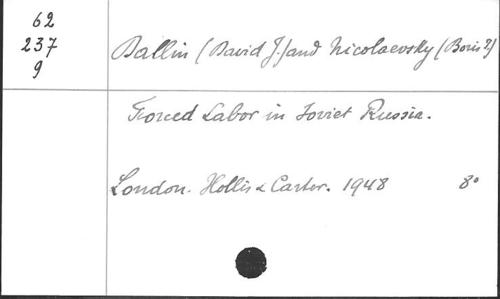 62
237
9
Dallin (David J.) and Nicolaevsky (Boris I.)
Forced Labor in Soviet Russia.
London. Hollis & Carter. 1948 8°